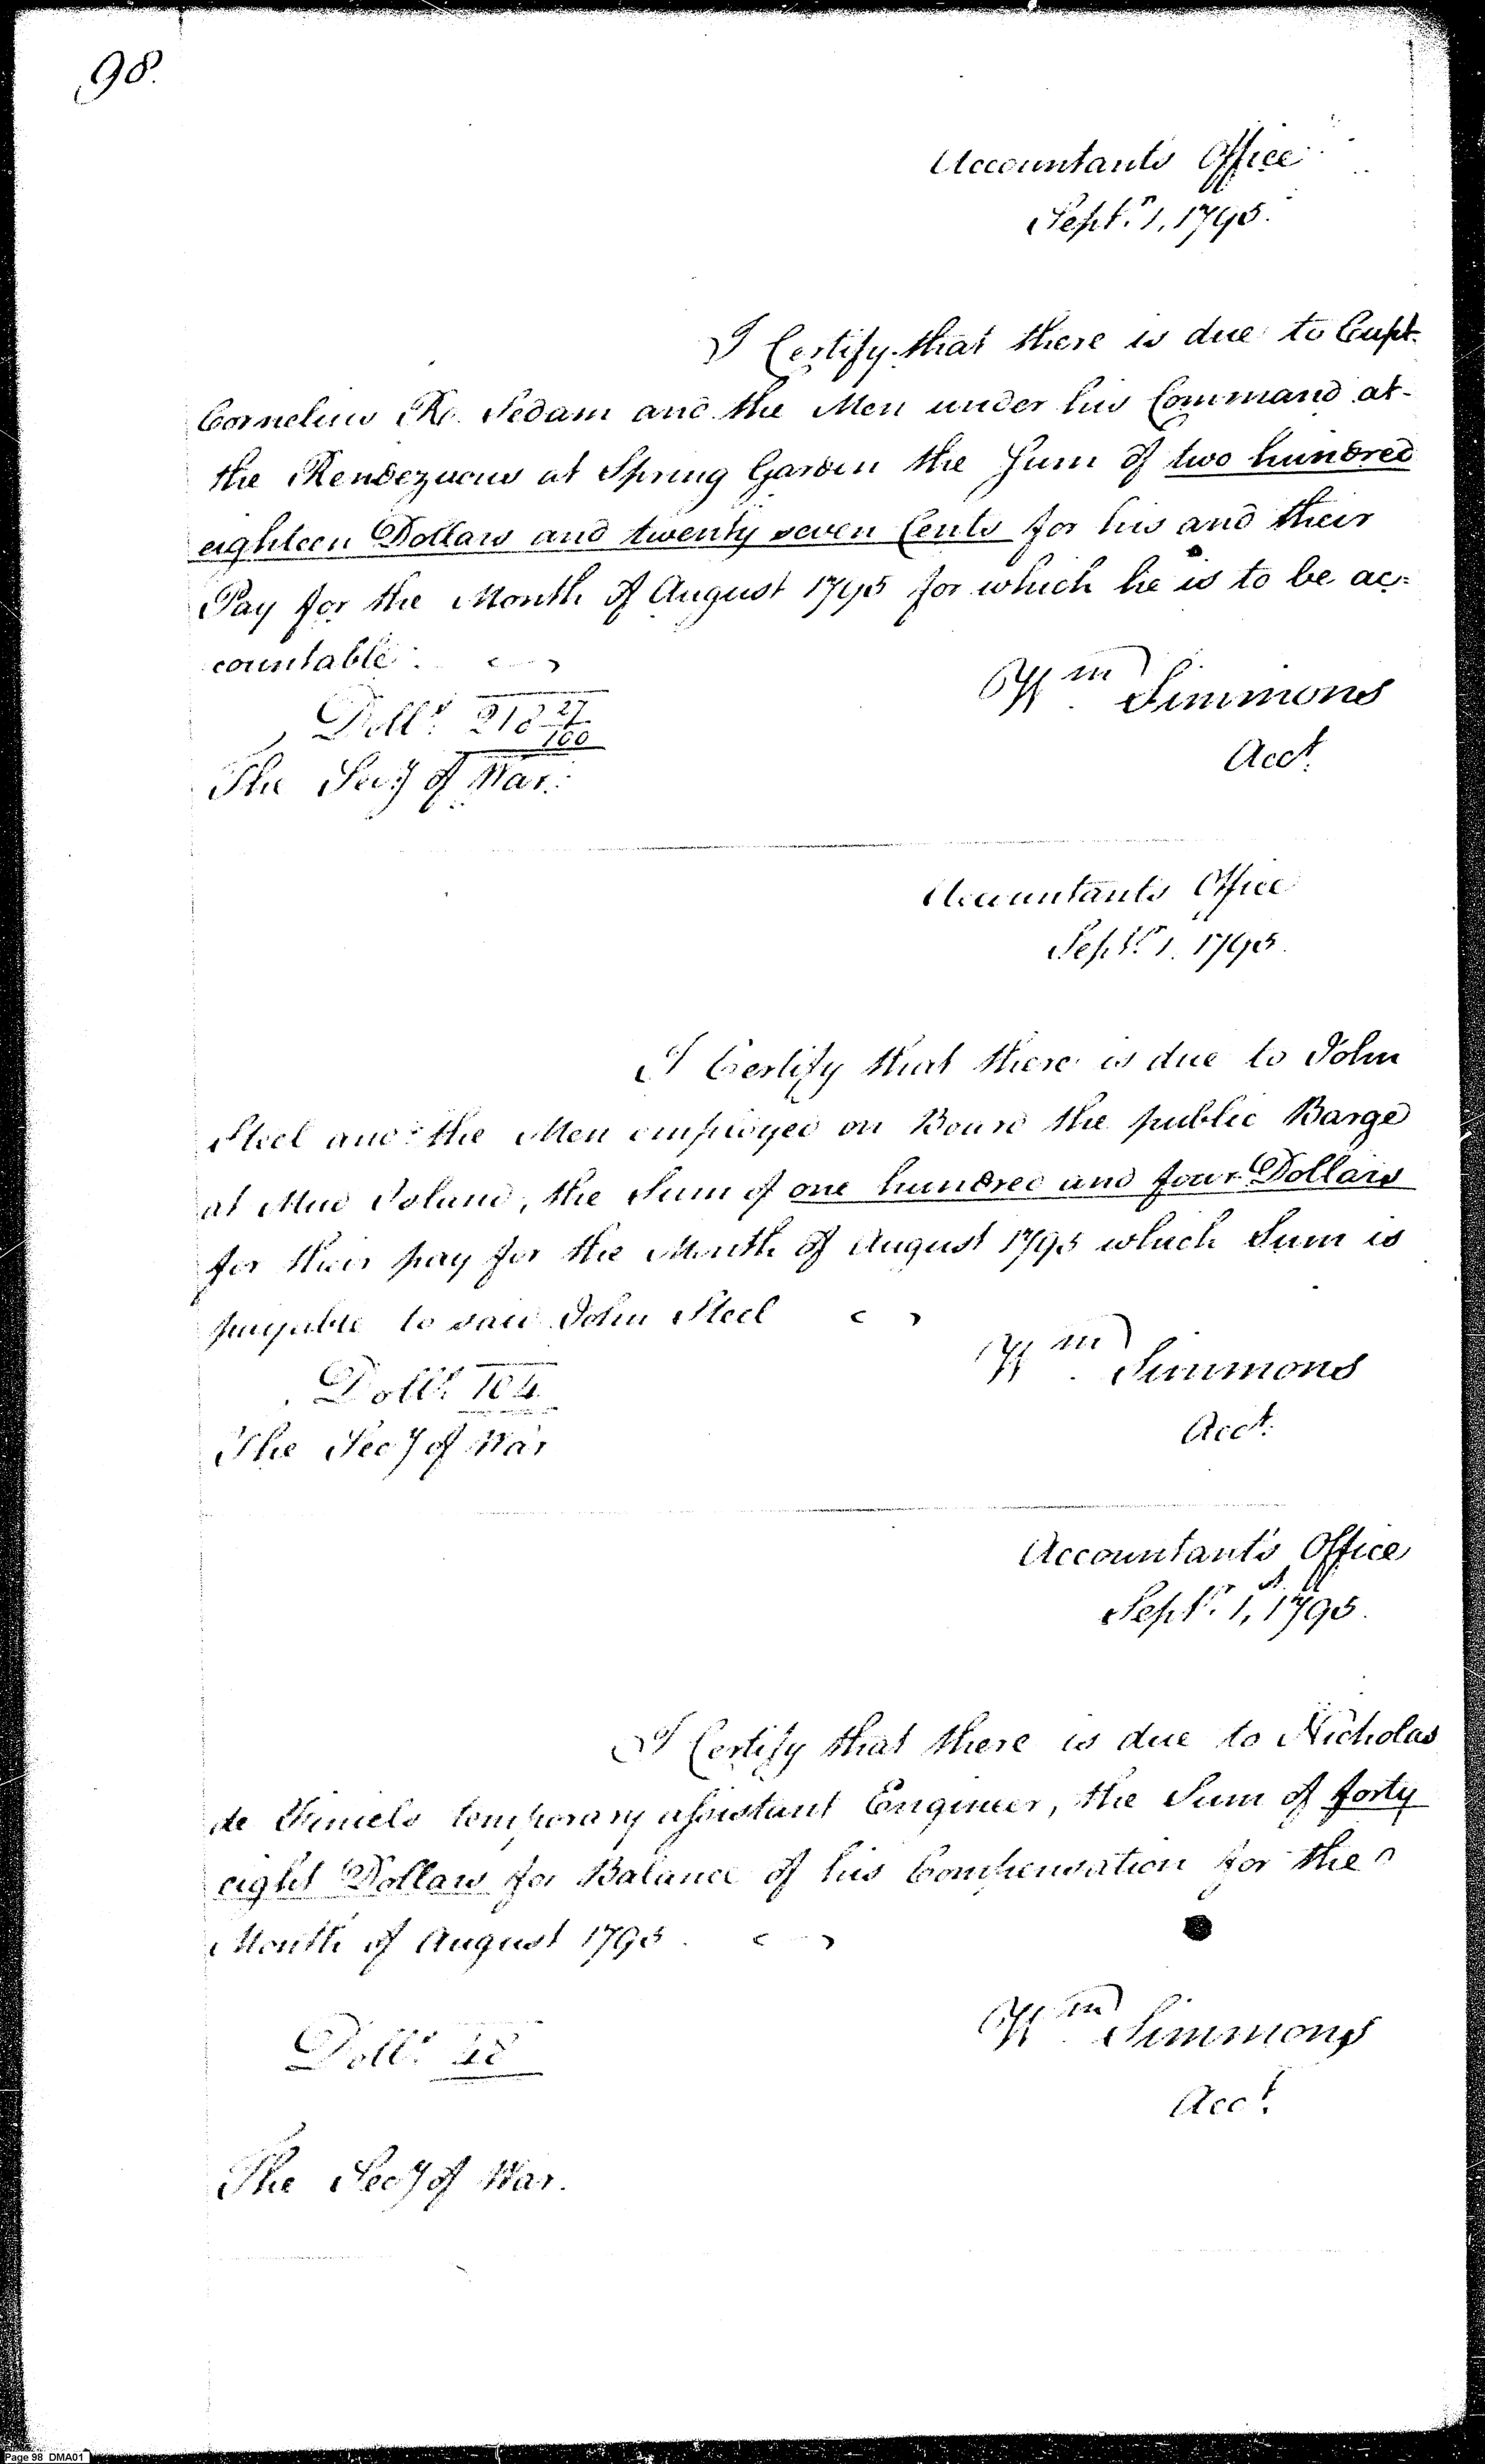 98.
Accountants Office
Sept.r 1, 1795.
I Certify that there is due to Capt.
Cornelius R. Sedam and the Men under his Command at
the Rendezvous at Spring Garden the Sum of two hundred
eighteen Dollars and twenty seven Cents for his and their
Pay for the Month of August 1795 for which he is to be ac=
countable.
Wm Simmons
Doll.s 218 27/100
Acct.
The Secy of War.
Accountants Office
Sept.r 1. 1795.
I Certify that there is due to John
Steel and the Men employed on Board the public Barge
at Mud Island, the Sum of one hundred and four Dollars
for their pay for the Month of August 1795 which Sum is
payable to said John Steel
Wm Simmons
Doll.s 104
Acct.
The Secy of War
Accountant's Office
Sept.r 1, 1795.
I Certify that there is due to Nicholas
de Finiels temporary assistant Engineer, the Sum of forty
eight Dollars for Balance of his Compensation for the
Month of August 1795.
Wm Simmons
Doll.s 48
Acct.
The Secy of War.
Page 98 DMA01